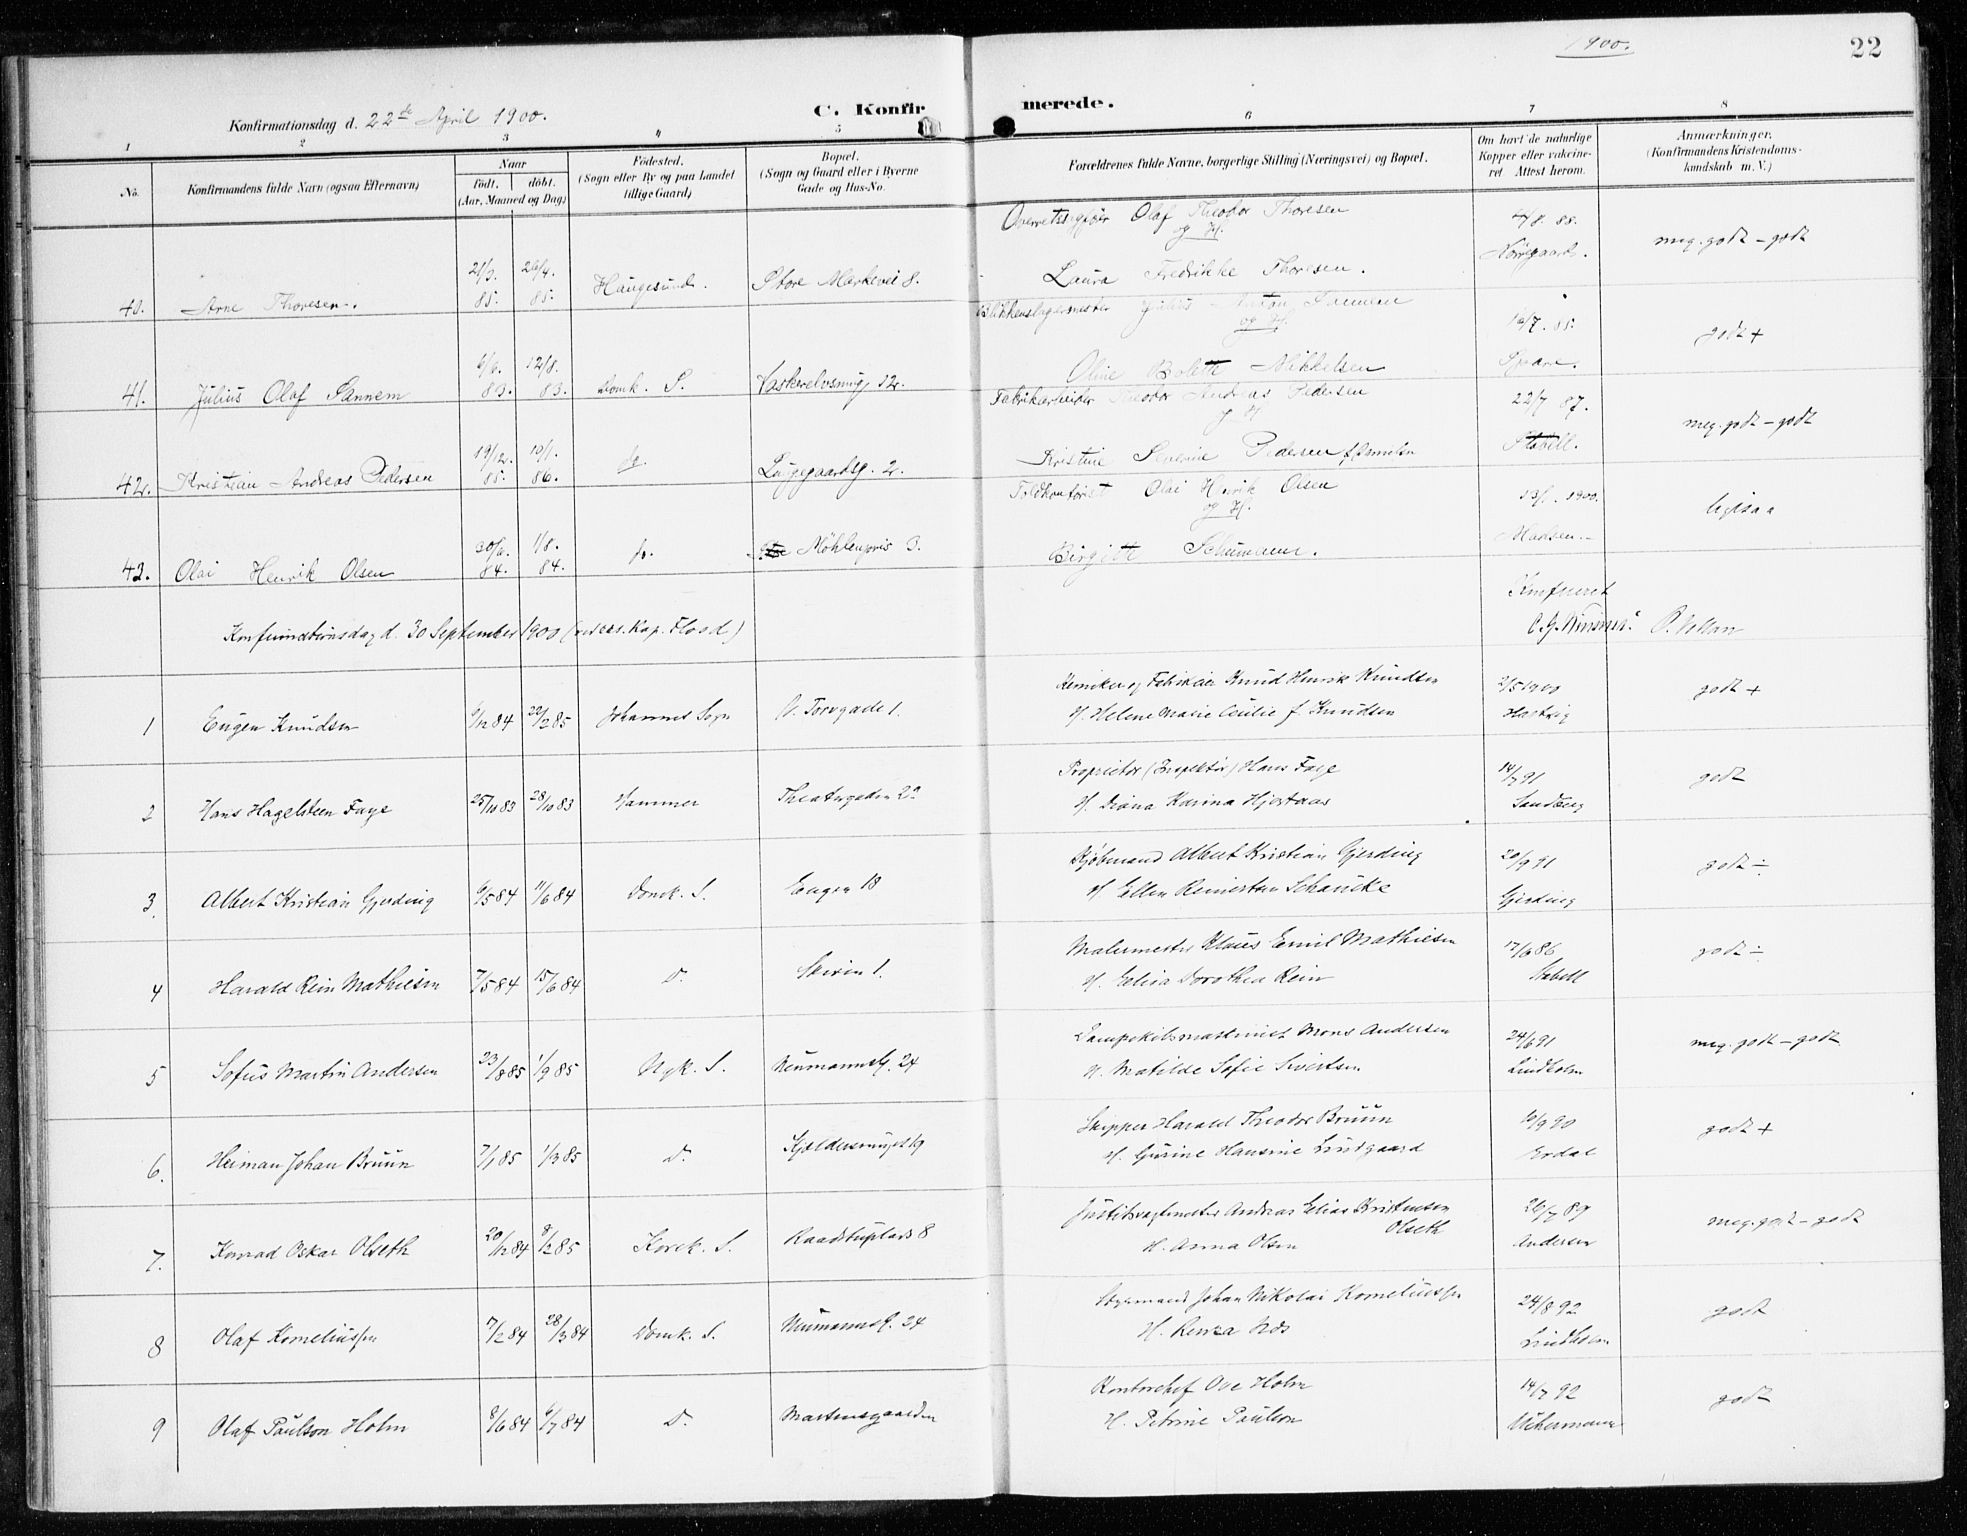 1900.
22
Konfirmationsdag d. 22de April 1900.
C. Konfirmerede.
1 2 3 4 5 6 7 8
No. Konfirmandens fulde Navn (ogsaa Efternavn) Naar født. døbt. (Aar, Maaned og Dag) Fødested. (Sogn eller By og paa Landet tillige Gaard) Bopæl. (Sogn og Gaard eller i Byerne Gade og Hus-No. Forældrenes fulde Navne, borgerlige Stilling (Næringsvei) og Bopæl. Om havt de naturlige Kopper eller vakcineret Attest herom. Anmærkninger. (Konfirmandens Kristendomskundskab m. V.)
Olaf Theodor Thoresen 88.
og H. Nørregaard. meg. godt – godt
40. Arne Thoresen. 21/3. 85. 26/4. 85. Haugesund. Store Markevei 8. Laura Fredrikke Thoresen.
Blikkenslagermester Anton Sannem
og H. 16/7. 85. godt +
41. Julius Olaf Sannem 6/6. 83. 12/8. 83. Domk. S. 12. Oline Bolette Mikkelsen
Fabrikarbeider Theodor Andreas Pedersen 22/7 87. meg. godt – godt
42. Kristian Andreas Pedersen 19/12. 85. 10/1. 86. do. Lyggegaardsg. 2. Kristine Severine Pedersen Stabell.
Toldkontorist Olai Henrik Olsen 13/1. 1900.
og H.
43. Olai Henrik Olsen 30/6. 84. 1/8. 84. do. Møhlenpris 3. Birgitte Schumann. Madsen.
Konfirmationsdag d. 30 September 1900 (ved res. Kap. Flood)
Kemiker og Fabrikeier Knud Henrik Knudsen 2/5 1900 godt +
1 Eugen Knudsen /12 84 22/2 85 Johannes Sogn V. Torvgade 1. H. Helene Marie Cecilie f. Knudsen Hartvig
Proprietær (Inspektør) Hans Faye 14/7 91 godt
2 Hans Hagelsteen Faye 83 28/10 83 Hammer Theatergaden H. Diana Karina Hjortaas Sandberg
Kjøbmand Albert Kristian Gjerding 20/9 91 godt ÷
3. Albert Kristian Gjerding 6/5 84 11/6 84 Domk. S. Engen 18 H. Ellen Reinertsen Schancke Gjerding
Malermester Klaus Emil Mathiesen 17/6 86 godt ÷
4 Harald Rein Mathiesen 7/5 84 15/6 84 D. Skiven 1. H. Elisa Dorothea Rein Stabell
Dampskibsmaskinist Mons Andersen 24/6 91 meg. godt – godt
5 Sofus Martin Andersen 23/8 85 1/9 85 Nyk. S. Neumannsg. 24 H. Matilde Sofie Sivertsen Lindholm
Skipper Harald Theodor Bruun 10/9 90 godt +
6. Heiman Johan Bruun 7/1 85 1/3 85 D. H. Gurine Hansine Lindgaard Erdal
Justitsvagtmester Andreas Elias Kristensen Olseth 26/7 89 meg. godt – godt
7. Konrad Oskar Olseth 20/12 84 8/2 85 Korsk. S. Raadstuplads 8 H. Anna Olsen Andersen
Styrmand Johan Nikolai Korneliussen 24/8 92 godt
8 Olaf Korneliussen 7/2 84 28/3 84 Domk. S. Neumannsg. 24 H. Lindholm
Kontorchef Ove Holm 14/7 92 godt
9 Olaf Paulson Holm 8/6 84 6/7 84 D. Martensgaarden H. Petrine Paulson Uchermann